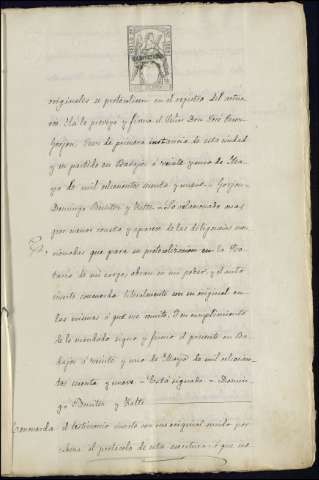 originales se protocolicen en el registro del actua
rio. Así lo proveyó y firma el Señor Don José
Gorjon, Juez de primera instancia de esta ciudad
y su partido en Badajoz á veinte y uno de Ma
yo de mil ochocientos sesenta y nueve = Gorjon =
Domingo Benitez y = Lo relacionado mas
por menor consta y aparece de las diligencias
que para su protocolizacion en la No
taria de mi cargo, obran en mi poder, y el auto
inserto concuerda literalmente con su original en
las mismas á que me remito. Y en cumplimiento
de lo mandado signo y firmo el presente en Ba
dajoz á veinte y uno de Mayo de mil ochocien
tos sesenta y nueve = Está signado = Domin
go Benitez y
Concuerda el testimonio inserto con su original unido por
cabeza al protocolo de esta escritura á que me